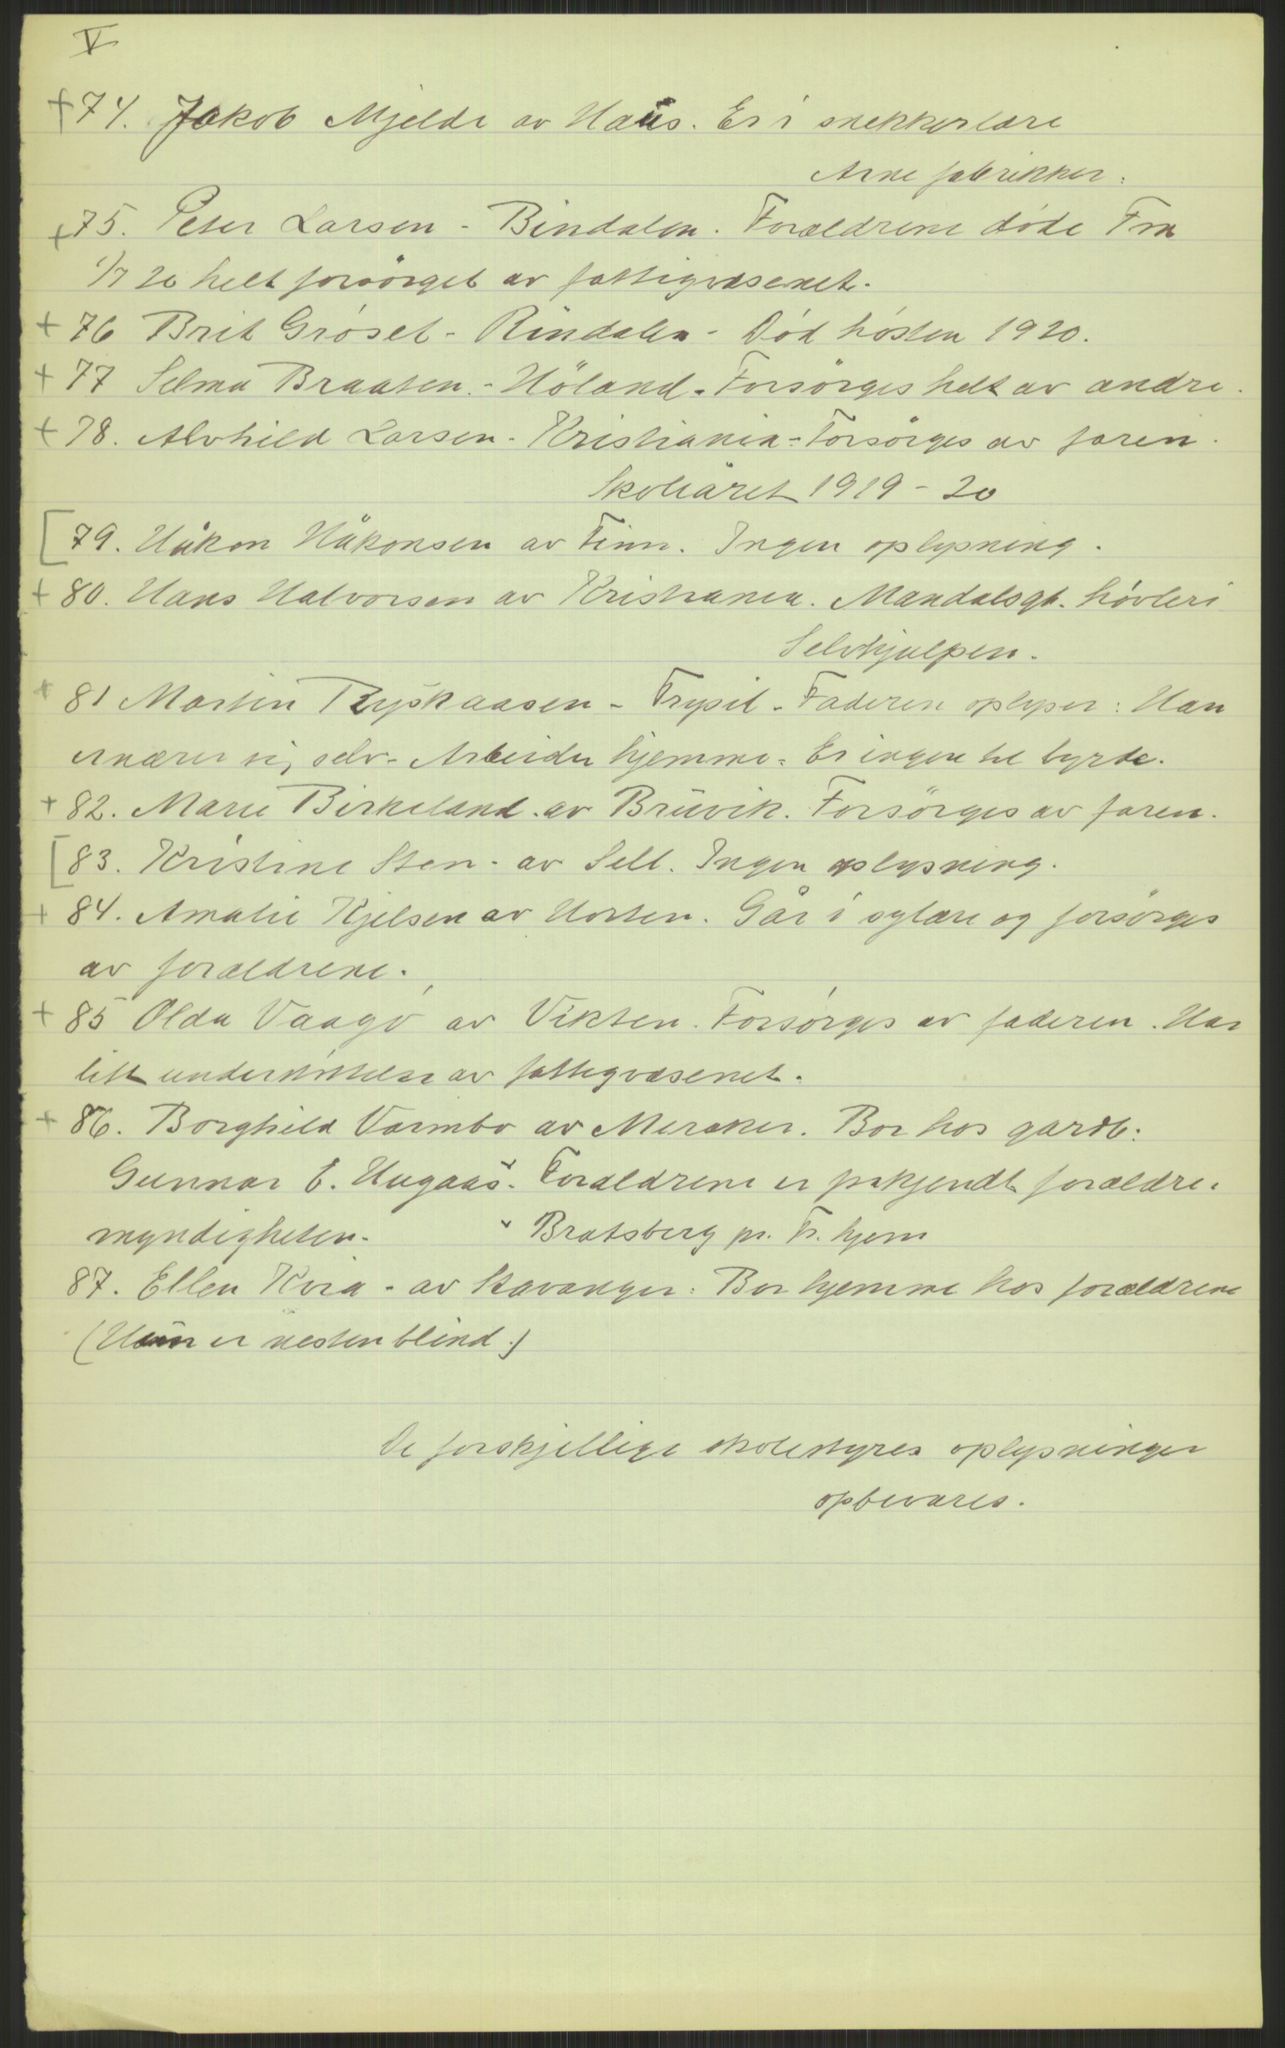 V
+ 74. Jakob Mjelde av Haus. Er i snekkerlære
Arne fabrikker.
+ 75. Peter Larsen - Bindalen. Forældrene døde Fra
1/7 20 helt forsörget av fattigvæsenet.
+ 76 Brit Grøset - Rindalen - Död hösten 1920.
+ 77 Selma Braaten. - Höland - Forsörges helt av andre.
+ 78. Alvhild Larsen - Kristiania - Forsörges av faren.
Skoleåret 1919 - 20
[ 79. Håkon Håkonsen av Finn. Ingen oplysning.
+ 80. Hans Halvorsen av Kristiania. Mandalsgt. hövleri
Selvhjælpen.
+ 81 Martin Ryskaasen - Trysil - Faderen oplyser: Han
ernærer sig selv - Arbeider hjemme - Er ingen til byrde.
+ 82. Marie Birkeland av Bruvik. Forsörges av faren.
[ 83. Kristine Sten - av Sell. Ingen oplysning.
+ 84. Amalie Kjelsen av Horten. Går i sylære og forsörges
av forældrene.
+ 85 Olda Vaagø av Vikten. Forsörges av faderen. Har
litt understöttelse av fattigvæsenet.
+ 86. Borghild Varmbo av Meraker. Bor hos gardb.
Gunnar E. Ungaas. Forældrene er frakjendt forældre-
myndigheten. Bratsberg pr. Tr.hjem
87. Ellen Kvia - av Stavanger. Bor hjemme hos forældrene
(Hun er næsten blind.)
De forskjellige skolestyres oplysninger
opbevares.